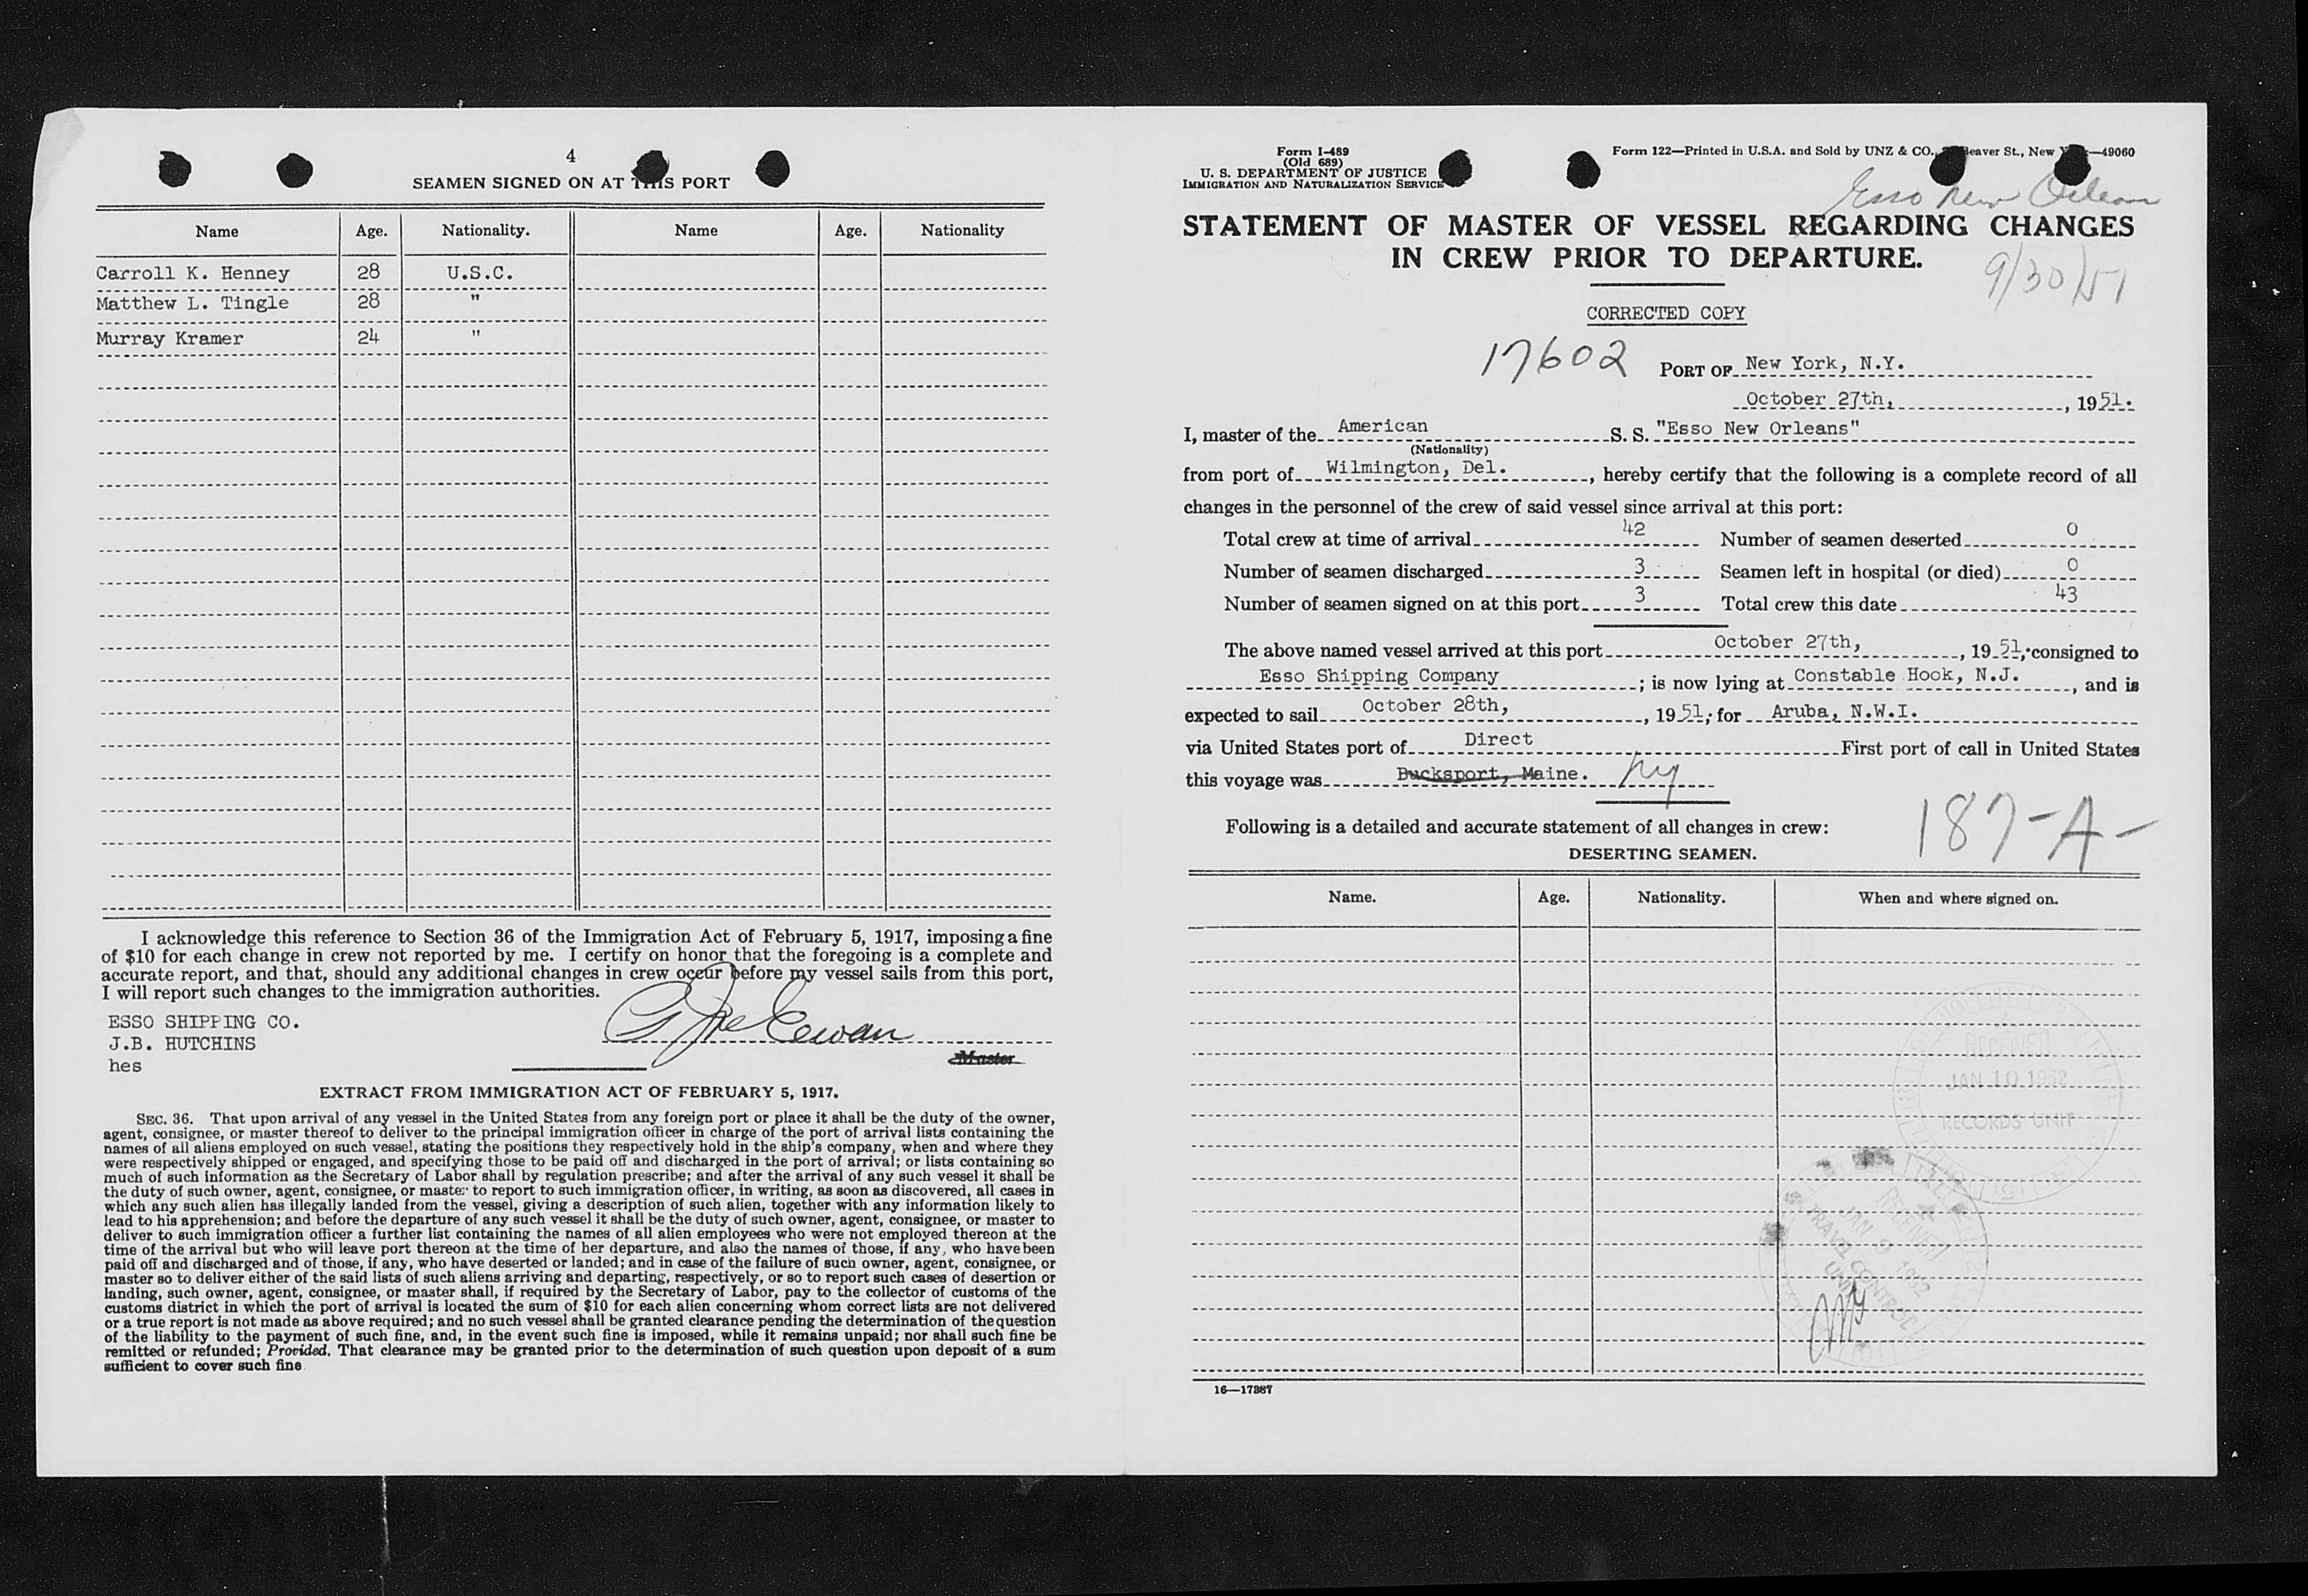 4
SEAMEN SIGNED ON AT THIS PORT
Name Age. Nationality. Name Age. Nationality
Carroll K. Henney 28 U.S.C.
Matthew L. Tingle 28 "
Murray Kramer 24 "
I acknowledge this reference to Section 36 of the Immigration Act of February 5, 1917, imposing a fine
of $10 for each change in crew not reported by me. I certify on honor that the foregoing is a complete and
accurate report, and that, should any additional changes in crew occur before my vessel sails from this port,
I will report such changes to the immigration authorities.
ESSO SHIPPING CO.
J.B. HUTCHINS
hes
Master
EXTRACT FROM IMMIGRATION ACT OF FEBRUARY 5, 1917.
SEC. 36. That upon arrival of any vessel in the United States from any foreign port or place it shall be the duty of the owner,
agent, consignee, or master thereof to deliver to the principal immigration officer in charge of the port of arrival lists containing the
names of all aliens employed on such vessel, stating the positions they respectively hold in the ship's company, when and where they
were respectively shipped or engaged, and specifying those to be paid off and discharged in the port of arrival; or lists containing so
much of such information as the Secretary of Labor shall by regulation prescribe; and after the arrival of any such vessel it shall be
the duty of such owner, agent, consignee, or master to report to such immigration officer, in writing, as soon as discovered, all cases in
which any such alien has illegally landed from the vessel, giving a description of such alien, together with any information likely to
lead to his apprehension; and before the departure of any such vessel it shall be the duty of such owner, agent, consignee, or master to
deliver to such immigration officer a further list containing the names of all alien employees who were not employed thereon at the
time of the arrival but who will leave port thereon at the time of her departure, and also the names of those, if any, who have been
paid off and discharged and of those, if any, who have deserted or landed; and in case of the failure of such owner, agent, consignee, or
master so to deliver either of the said lists of such aliens arriving and departing, respectively, or so to report such cases of desertion or
landing, such owner, agent, consignee, or master shall, if required by the Secretary of Labor, pay to the collector of customs of the
customs district in which the port of arrival is located the sum of $10 for each alien concerning whom correct lists are not delivered
or a true report is not made as above required; and no such vessel shall be granted clearance pending the determination of the question
of the liability to the payment of such fine, and, in the event such fine is imposed, while it remains unpaid; nor shall such fine be
remitted or refunded; Provided, That clearance may be granted prior to the determination of such question upon deposit of a sum
sufficient to cover such fine
Form I-489
(Old 689)
U. S. DEPARTMENT OF JUSTICE
IMMIGRATION AND NATURALIZATION SERVICE
Form 122—Printed in U.S.A. and Sold by UNZ & CO., Beaver St., New —49060
Esso New Orleans
STATEMENT OF MASTER OF VESSEL REGARDING CHANGES
IN CREW PRIOR TO DEPARTURE.
9/30/51
CORRECTED COPY
17602 PORT OF New York, N.Y.
October 27th, , 1951.
I, master of the American S. S. "Esso New Orleans"
(Nationality)
from port of Wilmington, Del. , hereby certify that the following is a complete record of all
changes in the personnel of the crew of said vessel since arrival at this port:
Total crew at time of arrival 42 Number of seamen deserted 0
Number of seamen discharged 3 Seamen left in hospital (or died) 0
Number of seamen signed on at this port 3 Total crew this date 43
The above named vessel arrived at this port October 27th, , 1951, consigned to
Esso Shipping Company ; is now lying at Constable Hook, N.J. , and is
expected to sail October 28th, , 1951; for Aruba, N.W.I.
via United States port of Direct First port of call in United States
this voyage was Bucksport, Maine. ny
Following is a detailed and accurate statement of all changes in crew:
187-A-
DESERTING SEAMEN.
Name. Age. Nationality. When and where signed on.
RECEIVED
JAN 10 1952
RECORDS UNIT
RECEIVED
JAN 9 1952
TRAVEL CONTROL
UNIT
16—17387